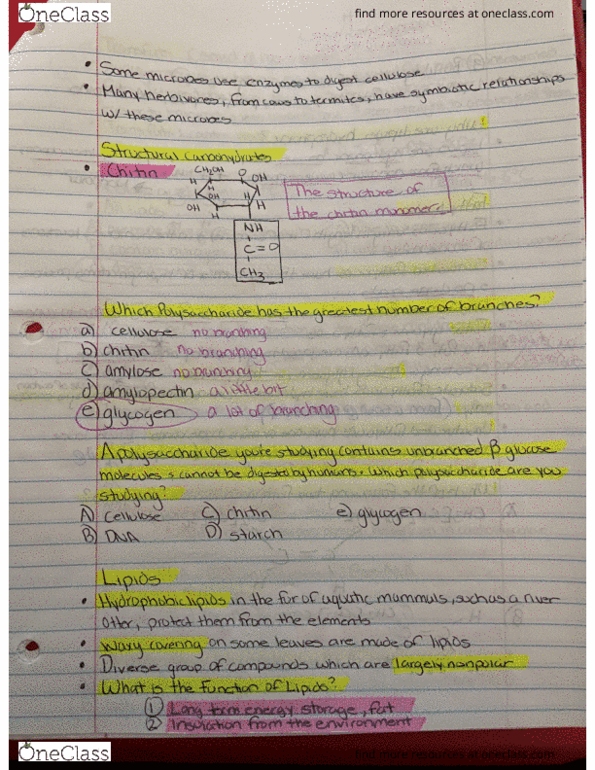 OneClass
find more resources at oneclass.com
• Some microbes use enzymes to digest cellulose
• Many herbivores, from cows to termites, have symbiotic relationships
w/ these microbes
Structural carbohydrates
• Chitin
CH2OH
O
OH
H
H
OH
H
H
OH
H
The structure of
the chitin monomer
NH
C=O
CH3
Which Polysaccharide has the greatest number of branches?
a) cellulose no branching
b) chitin no branching
c) amylose no branching
d) amylopectin - a little bit
e) glycogen a lot of branching
A polysaccharide you're studying contains unbranched β glucose
molecules + cannot be digested by humans. Which polysaccharide are you
studying?
A) cellulose C) chitin e) glycogen
B) DNA D) starch
Lipids
• Hydrophobic lipids in the fur of aquatic mammals, such as a river
otter, protect them from the elements
• Waxy covering on some leaves are made of lipids
• Diverse group of compounds which are largely nonpolar
• What is the function of Lipids?
① Long term energy storage, fat
② Insulation from the environment
OneClass
find more resources at oneclass.com